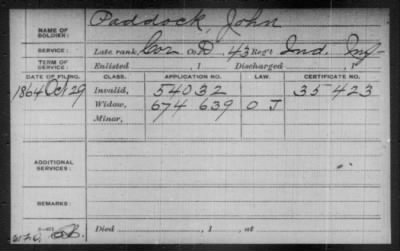 NAME OF SOLDIER: Paddock, John
SERVICE: Late rank, Cor Co. D, 43 Reg't Ind. Inf.
TERM OF SERVICE: Enlisted , 1 Discharged , 1
DATE OF FILING. CLASS. APPLICATION NO. LAW. CERTIFICATE NO.
1864 Oct 29 Invalid, 54032 35423
Widow, 674 639 O J
Minor,
ADDITIONAL SERVICES:
REMARKS:
Died , 1 , at